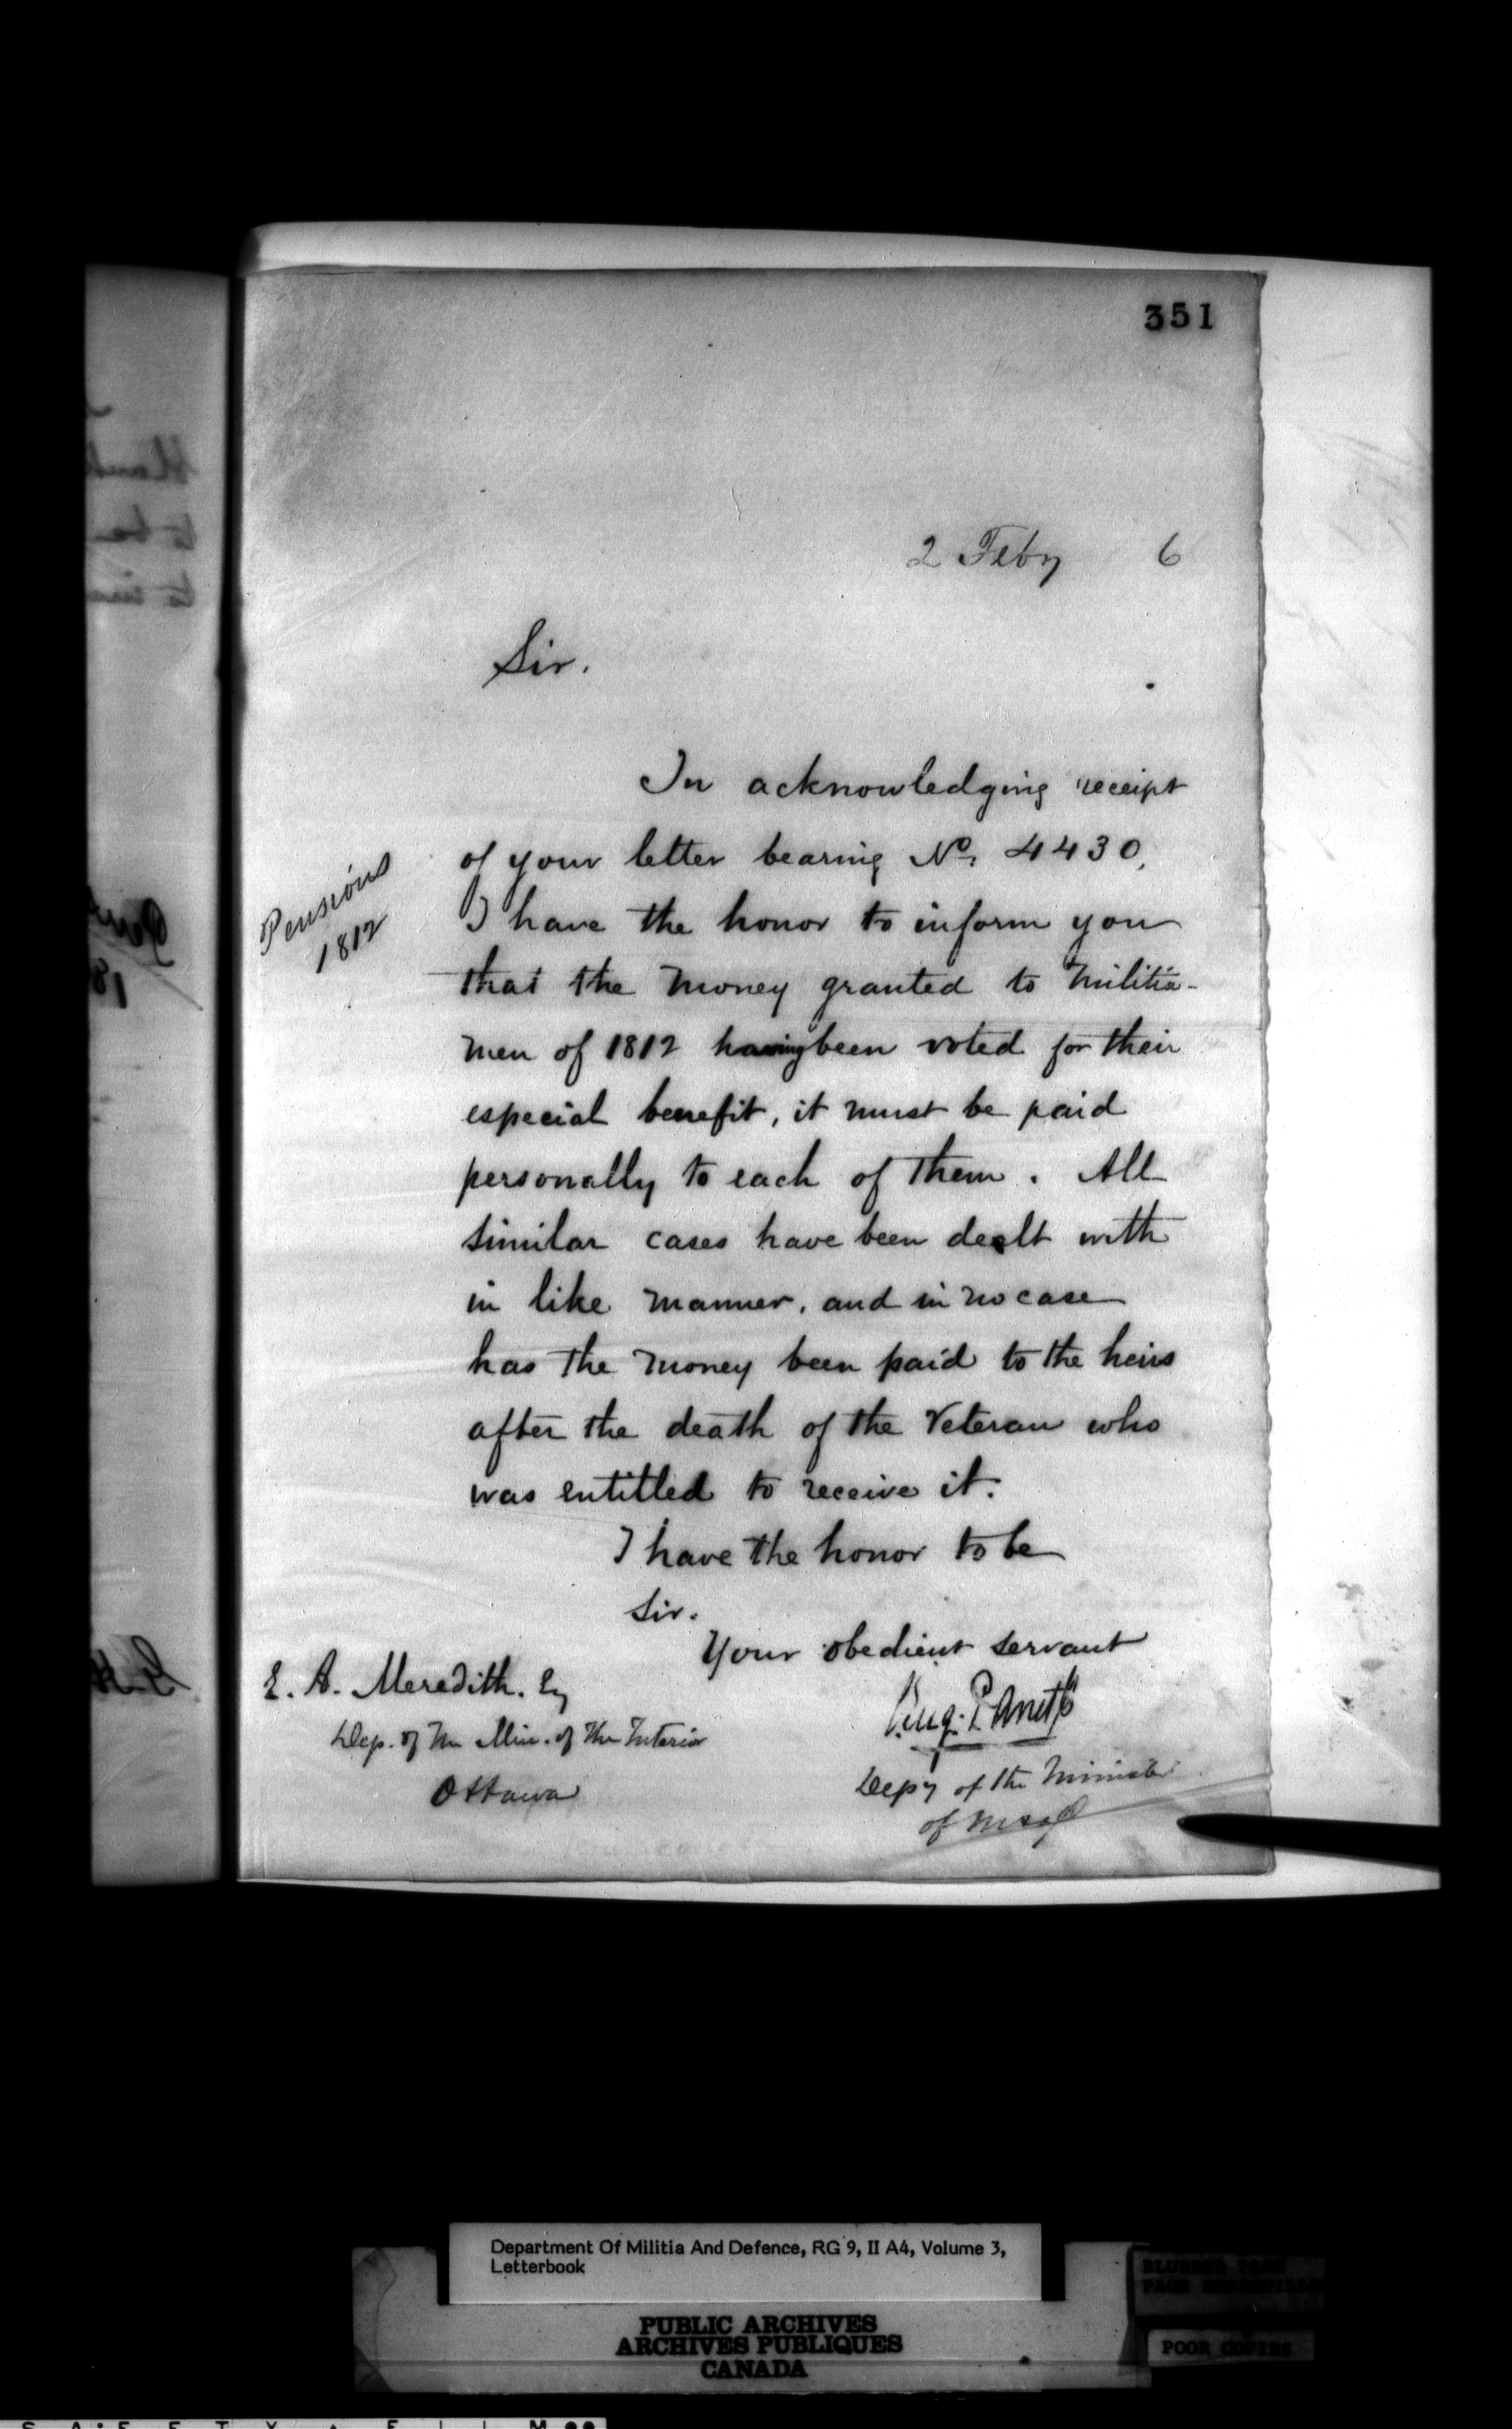 351
2 Feby 6
Sir.
In acknowledging receipt
of your letter bearing No. 4430,
Pensions
1812
I have the honor to inform you
that the money granted to Militia-
men of 1812 having been voted for their
especial benefit, it must be paid
personally to each of them. All
similar cases have been dealt with
in like manner, and in no case
has the money been paid to the heirs
after the death of the Veteran who
was entitled to receive it.
I have the honor to be
Sir.
Your obedient servant
E. A. Meredith. Esq
Dep. of the Min. of the Interior
Ottawa
Eug. Panet
Depy of the Minister
of M & D
Department Of Militia And Defence, RG 9, II A4, Volume 3,
Letterbook
PUBLIC ARCHIVES
ARCHIVES PUBLIQUES
CANADA
POOR COPIES